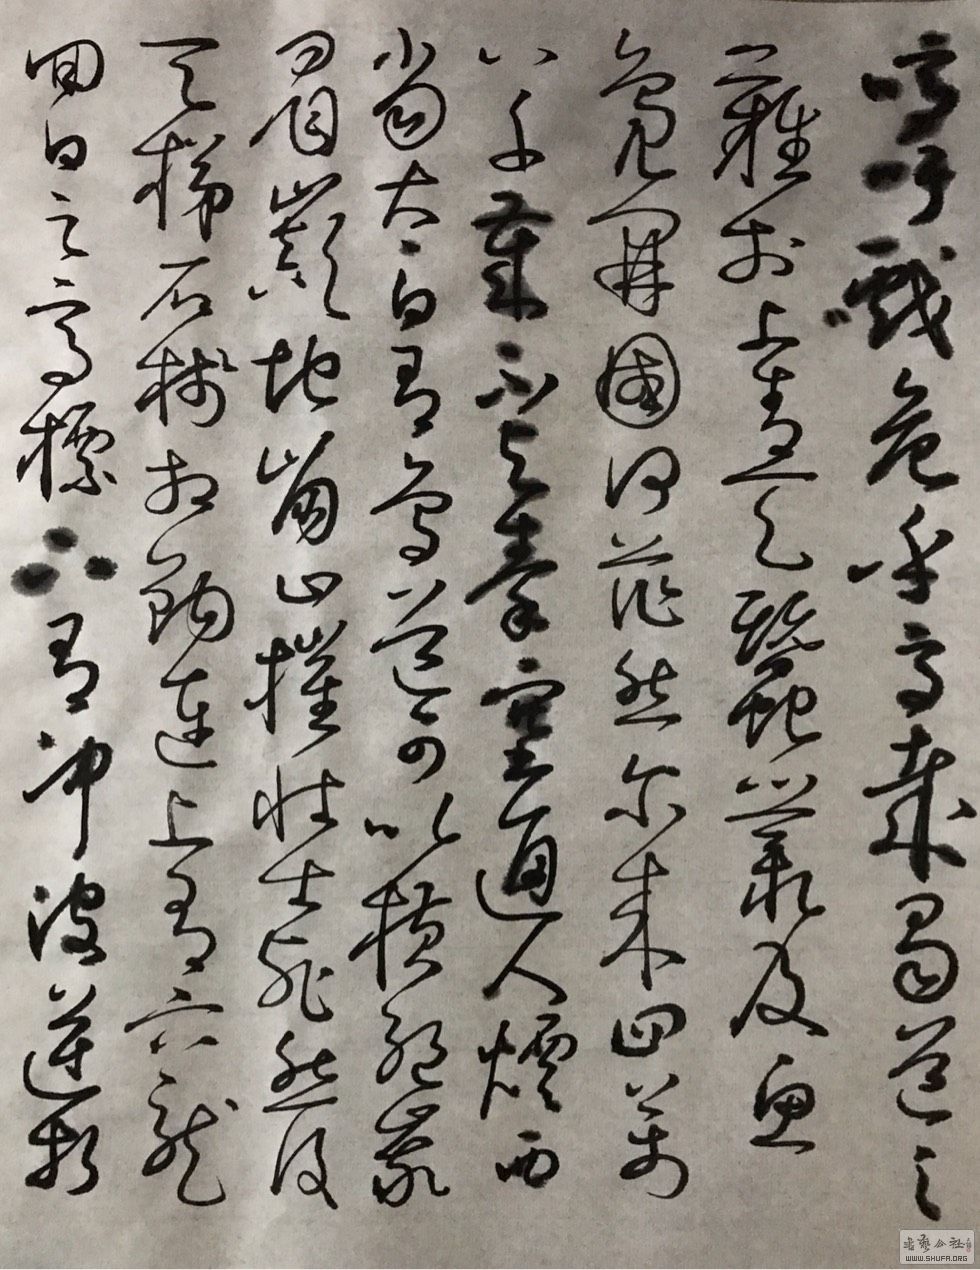 噫吁戲危乎高哉蜀道之
難於上青天蠶叢及魚
鳧開國何茫然尔来四萬
八千歲不与秦塞通人煙西
當太白有鳥道可以橫絕峨
眉巔地崩山摧壯士死然後
天梯石棧相鉤連上有六龍
回日之高標下有冲波逆折
书艺公社
WWW.SHUFA.ORG